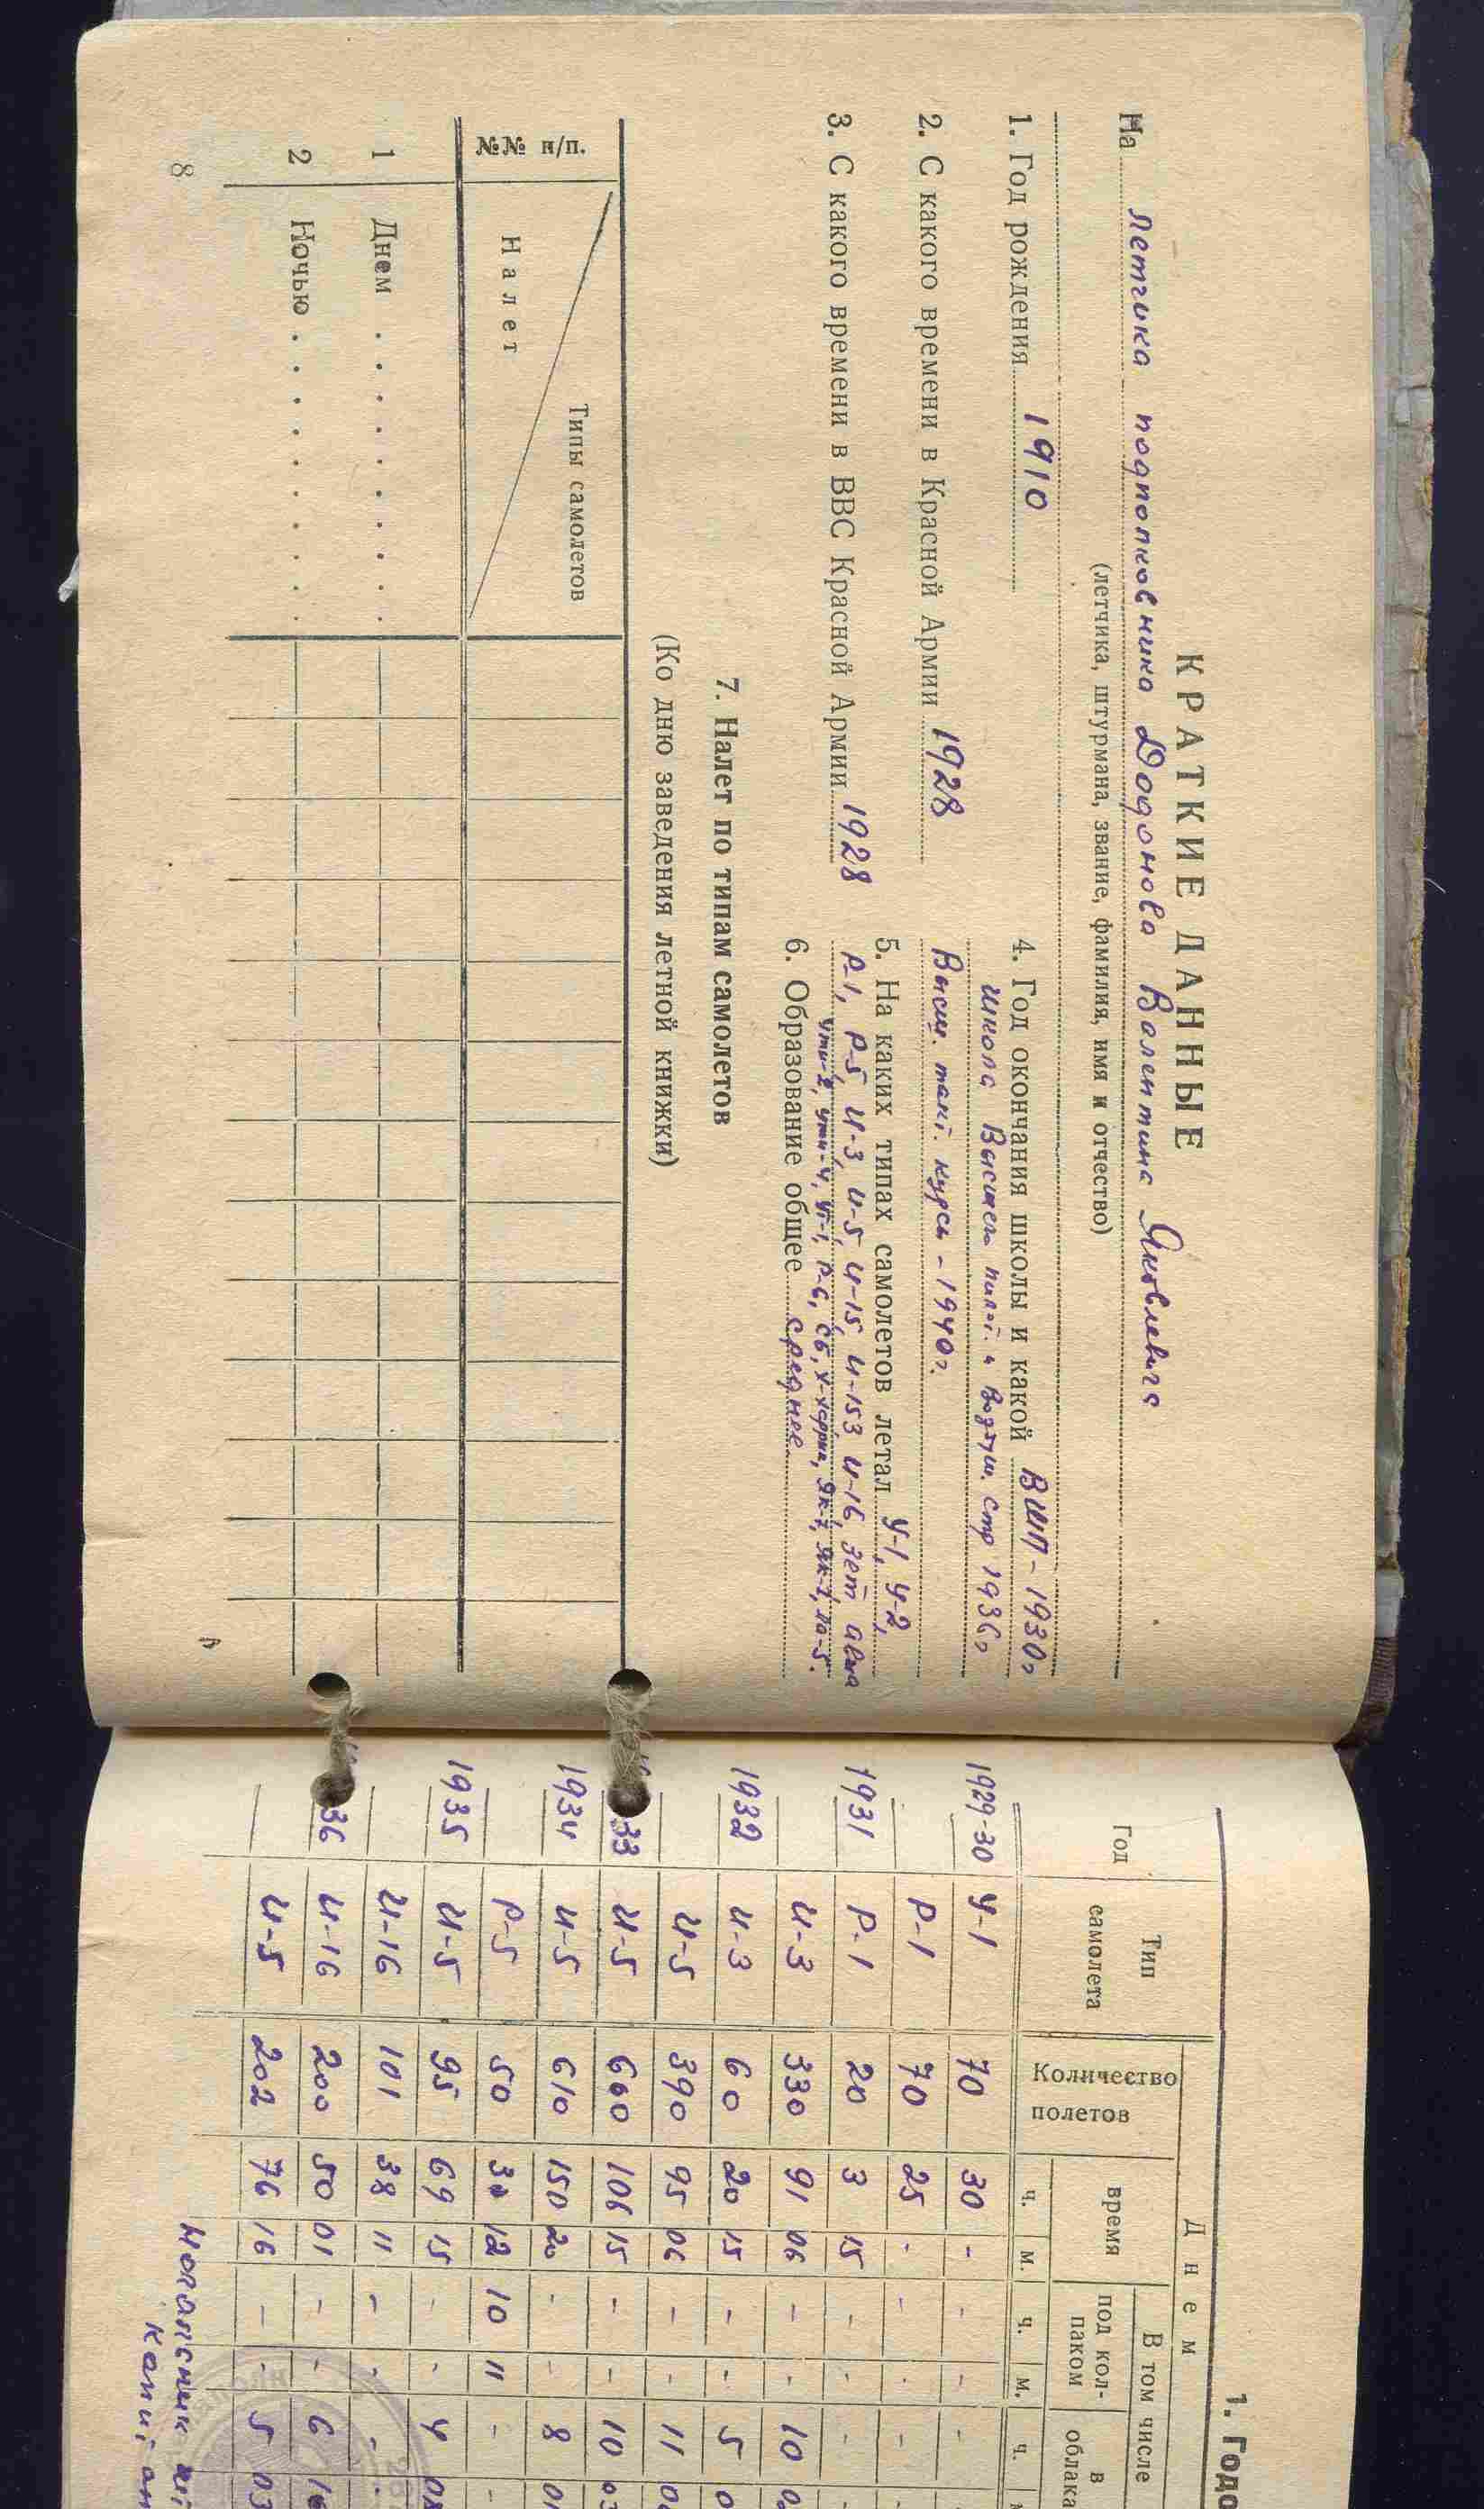 КРАТКИЕ ДАННЫЕ
На Летчика подполковника Додонова Валентина Яковлевича
(летчика, штурмана, звание, фамилия, имя и отчество)
1. Год рождения 1910
2. С какого времени в Красной Армии 1928
3. С какого времени в ВВС Красной Армии 1928
4. Год окончания школы и какой ВШЛ - 1930г
школа Высшего пилот. и воздуш. стр 1936г
Высш. такт. курсы - 1940г.
5. На каких типах самолетов летал У-1, У-2,
Р-1, Р-5, И-3, И-5, И-15, И-153 И-16, зет,
ути-4, Р-6, СБ, Як-7,
6. Образование общее среднее
7. Налет по типам самолетов
(Ко дню заведения летной книжки)
№№ п/п. Налет Типы самолетов
1 Днем
2 Ночью
8
1. Годо
Год Тип самолета Днем
Количество полетов время В том числе
под колпаком в облака
ч. м. ч. м. ч.
1929-30 У-1 70 30 - - - -
Р-1 70 25 - - - -
1931 Р-1 20 3 15 - - -
И-3 330 91 06 - - 10
1932 И-3 60 20 15 - - 5
И-5 390 95 06 - - 11
33 И-5 600 106 15 - - 10 03
1934 И-5 610 150 20 - - 8 01
Р-5 50 30 12 10 11 - -
1935 И-5 95 69 15 - - 4 08
И-16 101 38 11 - - -
36 И-16 200 50 01 - - 6 16
И-5 202 76 16 - - 5 03